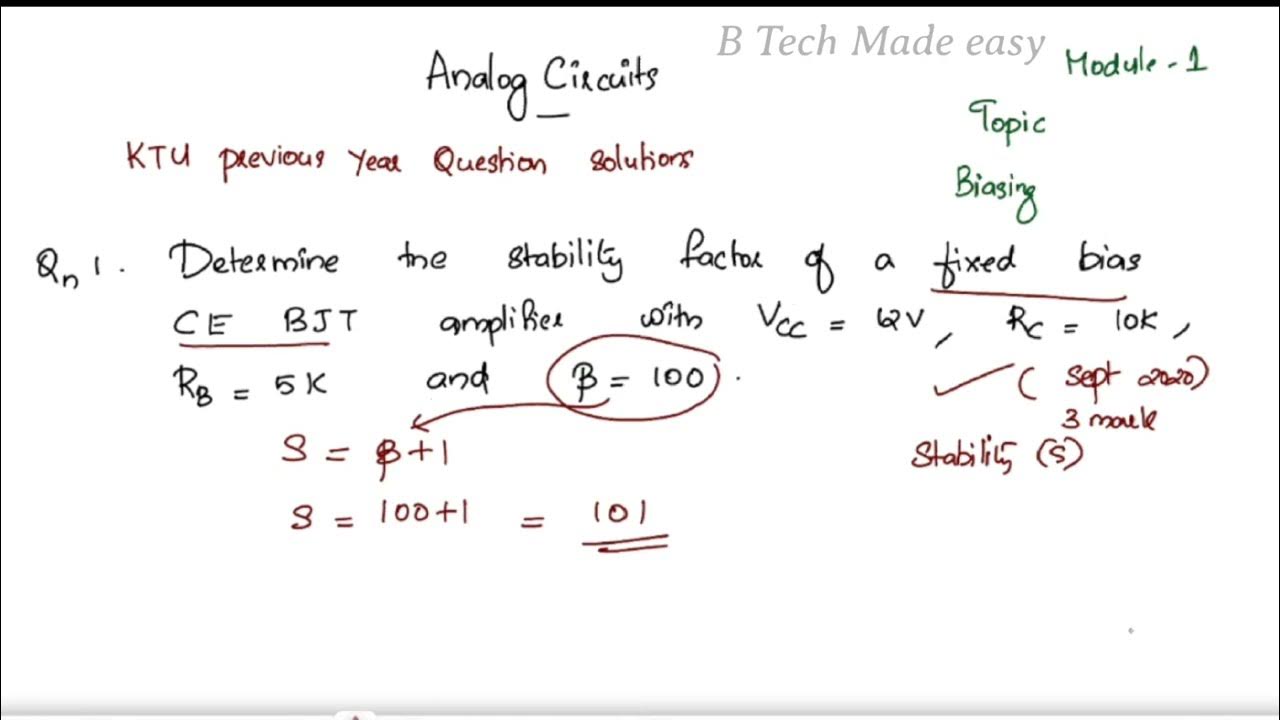 B Tech Made easy
Analog Circuits
Module - 1
Topic
Biasing
KTU previous Year Question solutions
Qn 1. Determine the stability factor of a fixed bias
CE BJT amplifier with VCC = 12V, RC = 10K,
RB = 5K and β = 100.
(Sept 2020)
3 mark
Stability (S)
S = β+1
S = 100+1 = 101